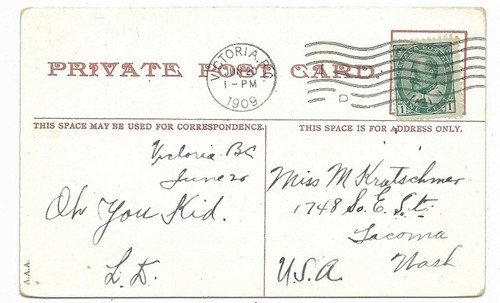 PRIVATE POST CARD.
VICTORIA, B.C.
JUN 20
1-PM
1909
1 1
THIS SPACE MAY BE USED FOR CORRESPONDENCE.
THIS SPACE IS FOR ADDRESS ONLY.
Victoria BC
June 20
Oh You Kid.
L.D.
Miss M Kratschmer
1748 So. E. St.
Tacoma
Wash
U.S.A
A.A.A.